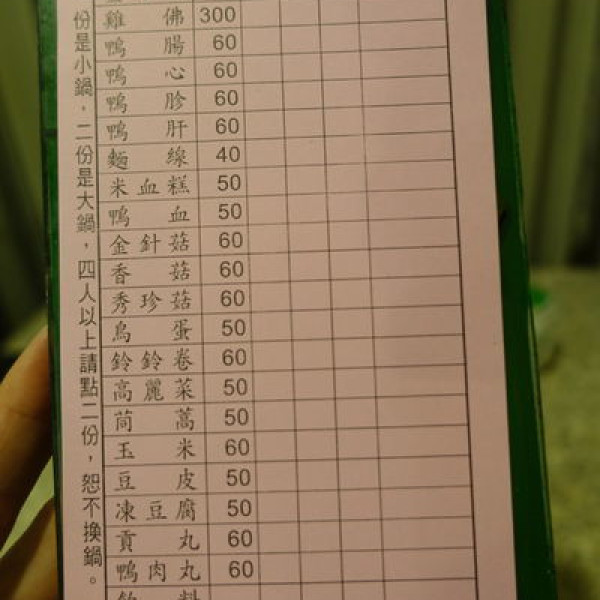 雞佛 300
鴨腸 60
鴨心 60
鴨胗 60
鴨肝 60
麵線 40
米血糕 50
鴨血 50
金針菇 60
香菇 60
秀珍菇 60
鳥蛋 50
鈴鈴卷 60
高麗菜 50
茼蒿 50
玉米 60
豆皮 50
凍豆腐 50
貢丸 60
鴨肉丸 60
飲料
份是小鍋，二份是大鍋，四人以上請點二份，恕不換鍋。